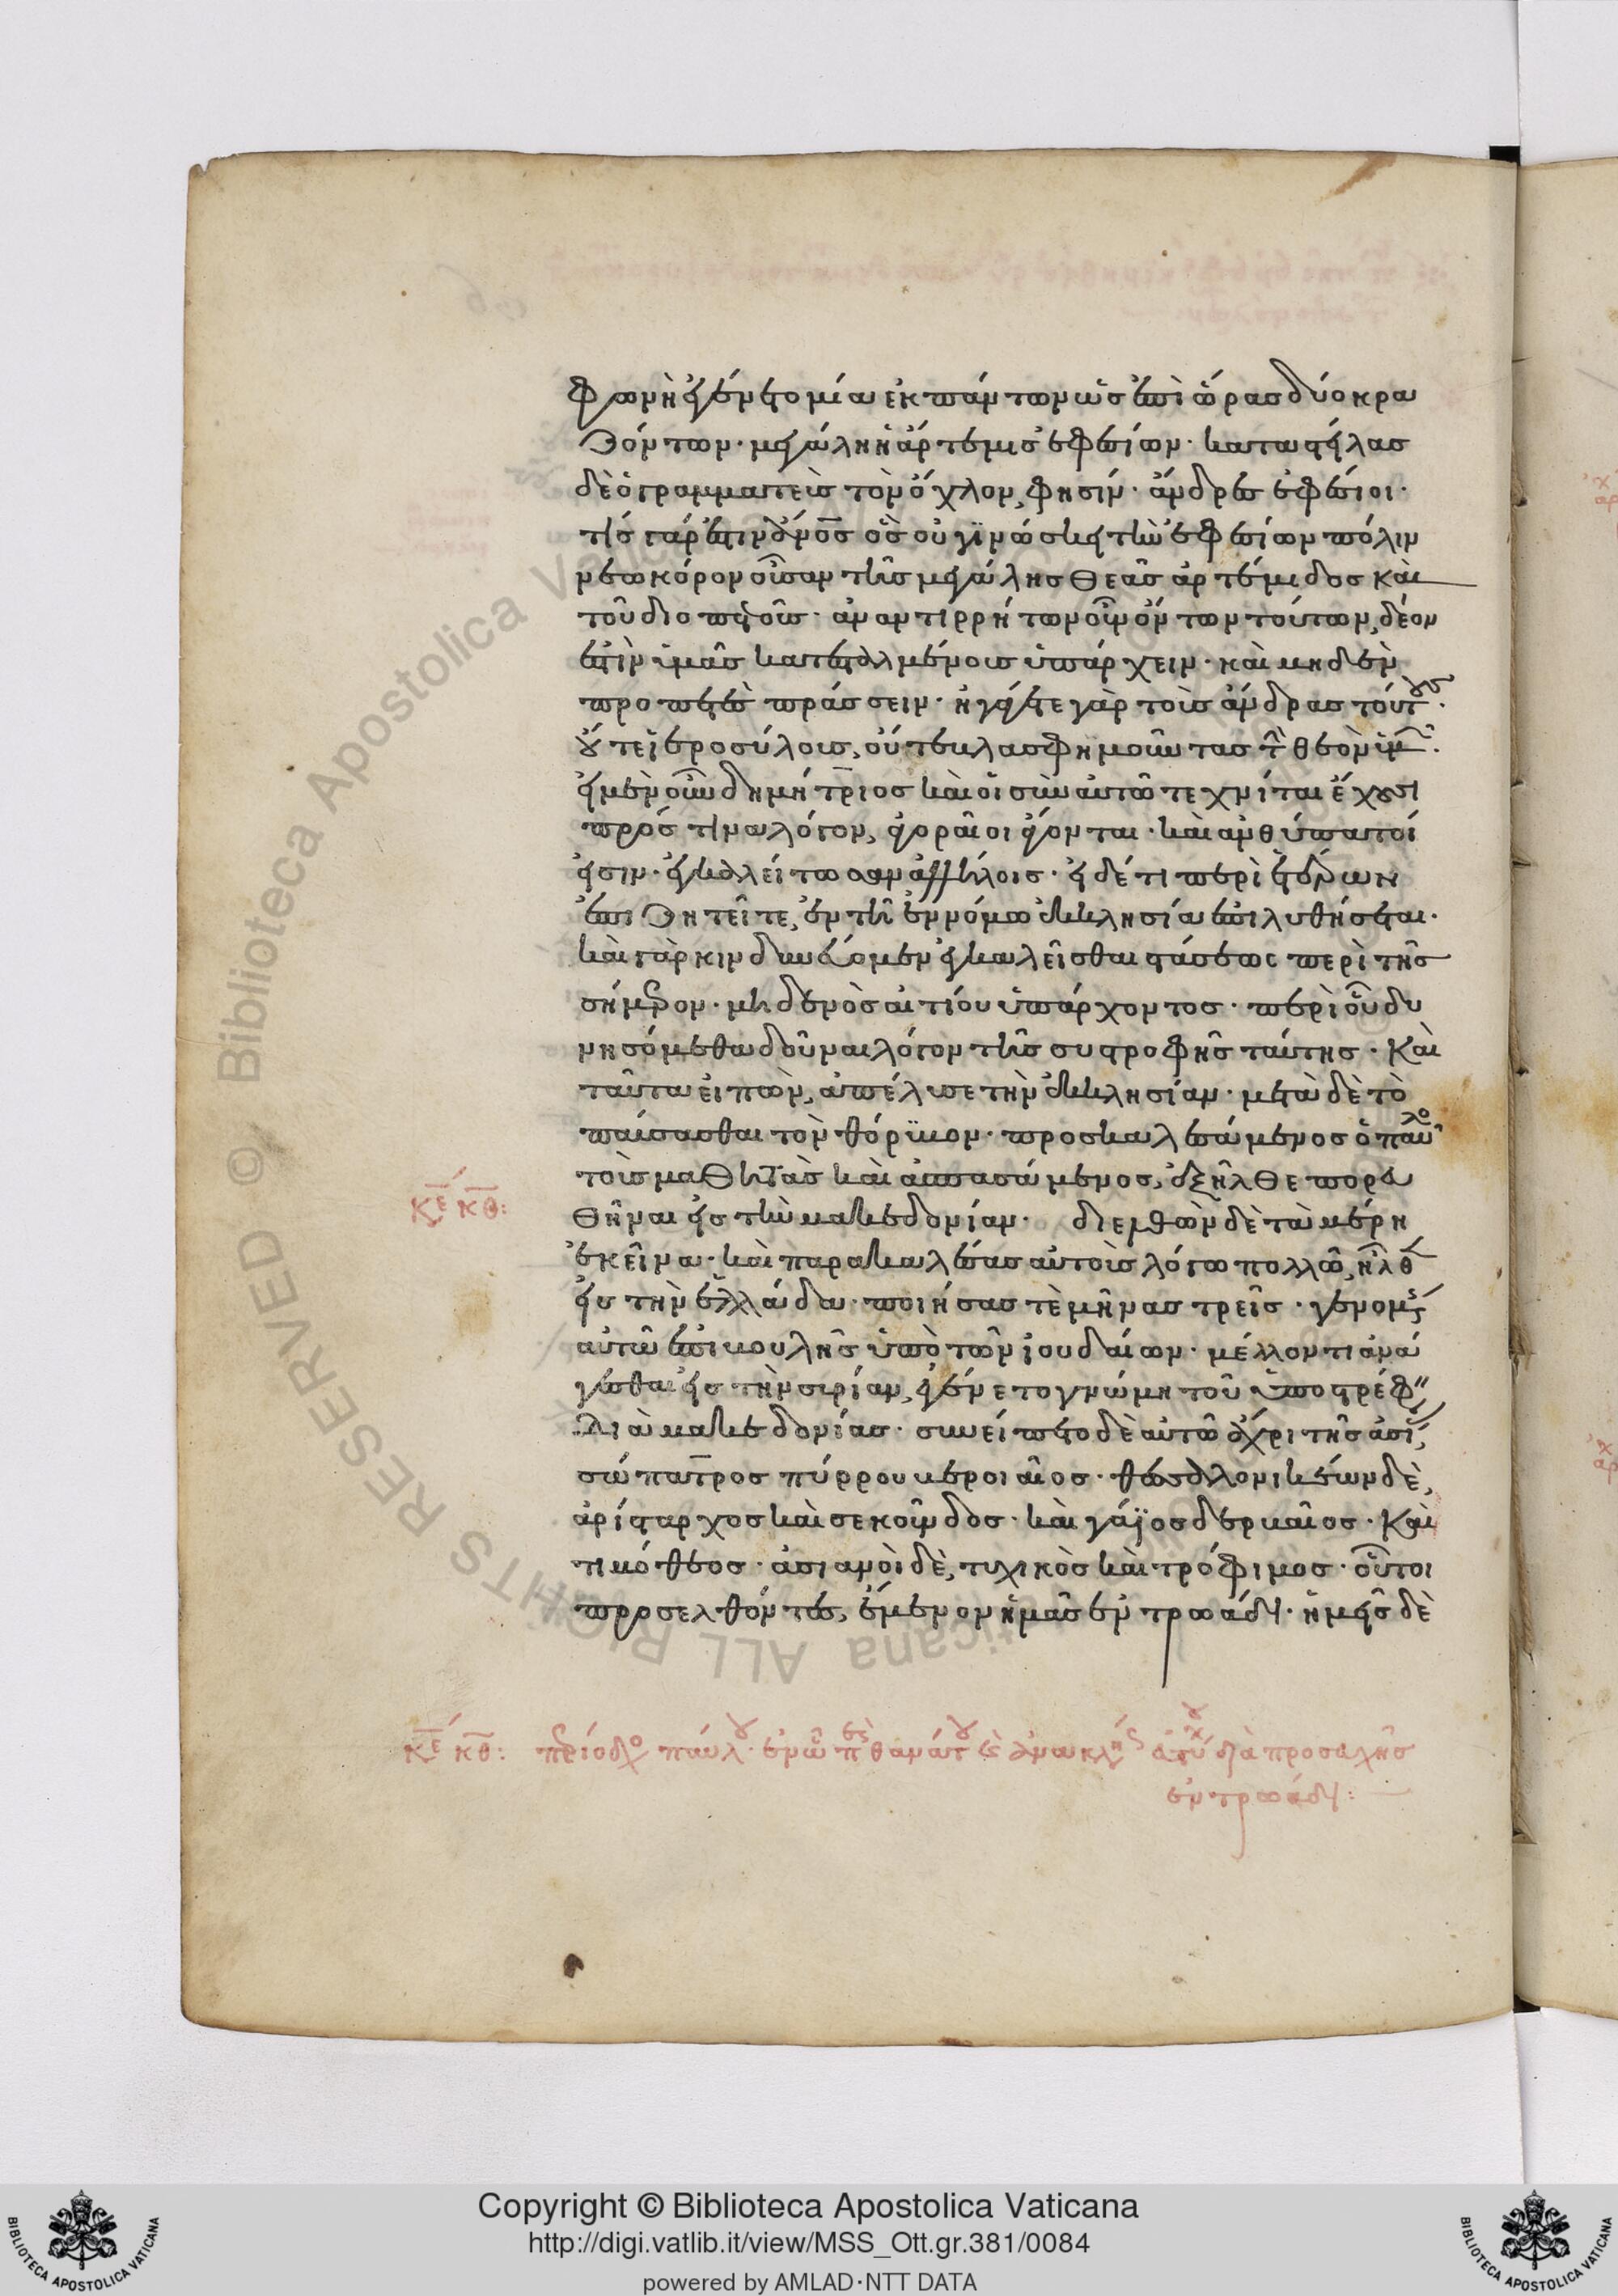 φωνὴ ἐγένετο μία ἐκ πάντων ὡς ἐπὶ ὥρας δύο κρα
ζόντων· μεγάλη ἡ ἄρτεμις ἐφεσίων· καταστείλας
δὲ ὁ γραμματεὺς τὸν ὄχλον, φησίν· ἄνδρες ἐφέσιοι·
τίς γάρ ἐστιν ἀνο̅ς ὃς οὐ γινώσκει τὴν ἐφεσίων πόλιν
νεωκόρον οὖσαν τῆς μεγάλης θεᾶς ἀρτέμιδος καὶ
τοῦ διοπετοῦς· ἀναντιρρήτων οὖν ὄντων τούτων, δέον
ἐστὶν ὑμᾶς κατεσταλμένους ὑπάρχειν· καὶ μηδὲν
προπετὲς πράσσειν· ἠγάγετε γὰρ τοὺς ἄνδρας τούτους·
οὔτε ἱεροσύλους, οὔτε βλασφημοῦντας τὴν θεὸν ὑμῶν·
εἰ μὲν οὖν δημήτριος καὶ οἱ σὺν αὐτῶ τεχνίται ἔχουσι
πρός τινα λόγον, ἀγοραῖοι ἄγονται· καὶ ἀνθύπατοί
εἰσιν· ἐγκαλείτωσαν ἀλλήλοις· εἰ δέ τι περὶ ἑτέρων
ἐπιζητεῖτε, ἐν τῆ ἐννόμω ἐκκλησία ἐπιλυθήσεται·
καὶ γὰρ κινδυνεύομεν ἐγκαλεῖσθαι στάσεως περὶ τῆς
σήμερον· μηδενὸς αἰτίου ὑπάρχοντος· περὶ οὗ δυ
νησόμεθα δοῦναι λόγον τῆς συστροφῆς ταύτης· καὶ
ταῦτα εἰπὼν, ἀπέλυσε τὴν ἐκκλησίαν· μετὰ δὲ τὸ
παύσασθαι τὸν θόρυβον· προσκαλεσάμενος ὁ παῦλο
τοὺς μαθητὰς καὶ ἀσπασάμενος, ἐξῆλθε πορευ
κε κθ: θῆναι εἰς τὴν μακεδονίαν· διελθὼν δὲ τὰ μέρη
ἐκεῖνα· καὶ παρακαλέσας αὐτοὺς λόγω πολλῶ, ἦλθ
εἰς τὴν ἑλλάδα· ποιήσας τὲ μῆνας τρεῖς· γενομένης
αὐτῶ ἐπιβουλῆς ὑπὸ τῶν ἰουδαίων· μέλλοντι ἀνά
γεσθαι εἰς τὴν συρίαν, ἐγένετο γνώμη τοῦ ὑποστρέφειν
διὰ μακεδονίας· συνείπετο δὲ αὐτῶ ἄχρι τῆς ἀσί,
σώπατρος πύρρου βεροιαῖος· θεσσαλονικέων δὲ,
ἀρίσταρχος καὶ σεκοῦνδος· καὶ γάϊος δερβαῖος· καὶ
τιμόθεος· ἀσιανοὶ δὲ, τυχικὸς καὶ τρόφιμος· οὗτοι
προσελθόντες, ἔμενον ἡμᾶς ἐν τρωάδι· ἡμεῖς δὲ
κε κθ: περίοδο παύλου· ἐν ὧ περὶ θανάτου καὶ ἀνακλή εὐτύχου διὰ προσευχῆς
ἐν τρωάδι:
Copyright © Biblioteca Apostolica Vaticana
http://digi.vatlib.it/view/MSS_Ott.gr.381/0084
powered by AMLAD·NTT DATA